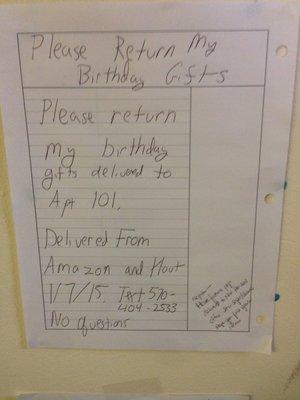 Please Return My
Birthday Gifts
Please return
my birthday
gifts delivered to
Apt 101.
Delivered From
Amazon and Haut
1/7/15. Text 570-
404-2533
No questions